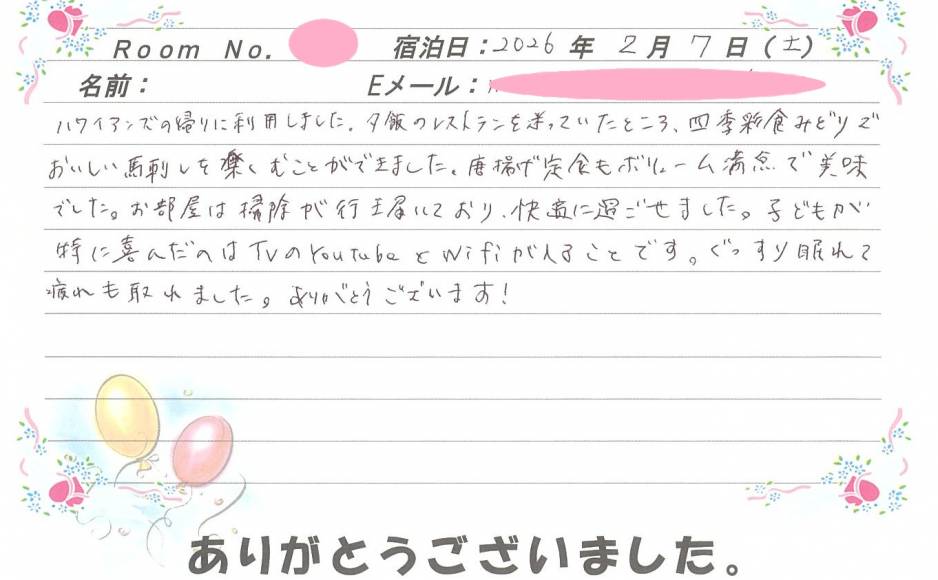 Room No. 宿泊日：2026 年 2 月 7 日（土）
名前： Eメール：
ハワイアンズの帰りに利用しました。夕飯のレストランを迷っていたところ、四季彩食みどりで
おいしい馬刺しを楽しむことができました。唐揚げ定食もボリューム満点で美味
でした。お部屋は掃除が行き届いており、快適に過ごせました。子どもが
特に喜んだのはTVのYoutubeとWifiが入ることです。ぐっすり眠れて
疲れも取れました。ありがとうございます！
ありがとうございました。